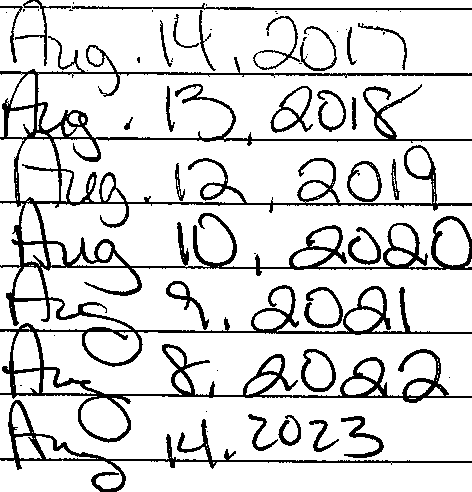 Aug. 14, 2017
Aug. 13, 2018
Aug. 12, 2019
Aug 10, 2020
Aug 9, 2021
Aug 8, 2022
Aug 14, 2023